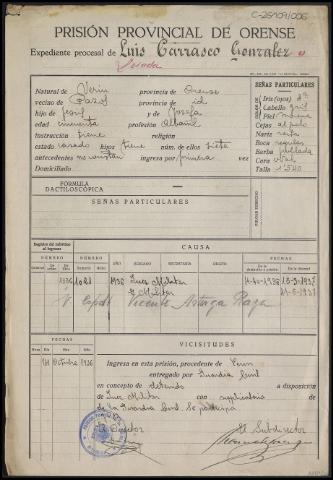 C-25109/006
PRISIÓN PROVINCIAL DE ORENSE
Expediente procesal de Luis Carrasco Gonzalez
Natural de Verin provincia de Orense
vecino de provincia de id
hijo de José y de Josefa
edad cincuenta profesión Albañil
Instrucción tiene religión
estado casado hijos tiene núm. de ellos siete
antecedentes no constan ingresa por primera vez
Domiciliado
SEÑAS PARTICULARES
Iris (ojos)
Cabello gris
Piel morena
Cejas al pelo
Nariz recta
Boca regular
Barba poblada
Cara oval
Talla 1'540
FÓRMULA DACTILOSCÓPICA
SEÑAS PARTICULARES
CAUSA
NÚMERO
NÚMERO
AÑO
JUZGADO
SECRETARÍA
DELITO
FECHAS
1936 1021 1936 Juez Militar 11-10-1936 13-5-1937
Militar 21-5-1937
Vicente Astuga Plaza
FECHAS
VICISITUDES
Día
Mes
Año
11 Octubre 1936
Ingresa en esta prisión, procedente de Verin
entregado por Guardia Civil
en concepto de detenido a disposición
de Juez Militar con suplicatorio
de la Guardia Civil. Se participa
El Director
El Subdirector